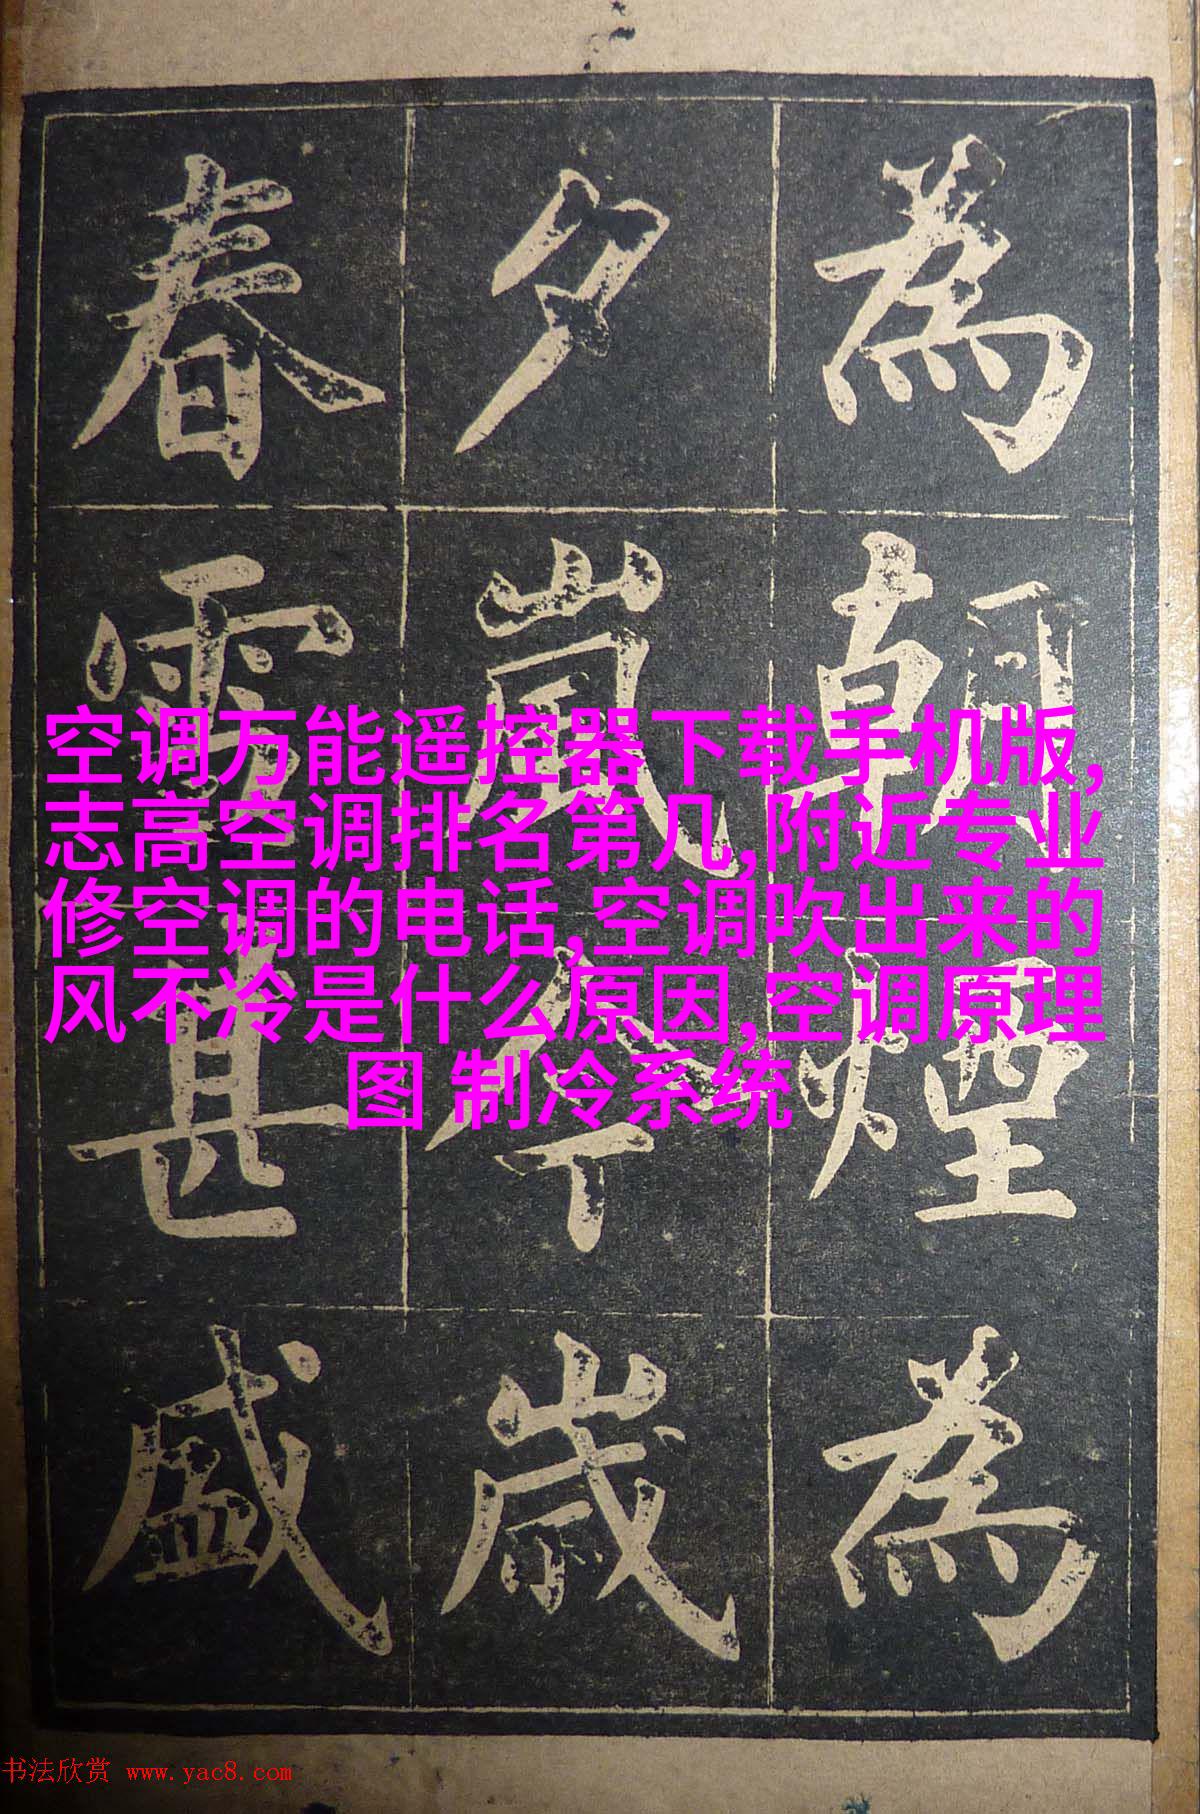 為朝煙為
夕嵐今歳
春雪甚盛
空调万能遥控器下载手机版,
志高空调排名第几,附近专业
修空调的电话,空调吹出来的
风不冷是什么原因,空调原理
图 制冷系统
书法欣赏 www.yac8.com